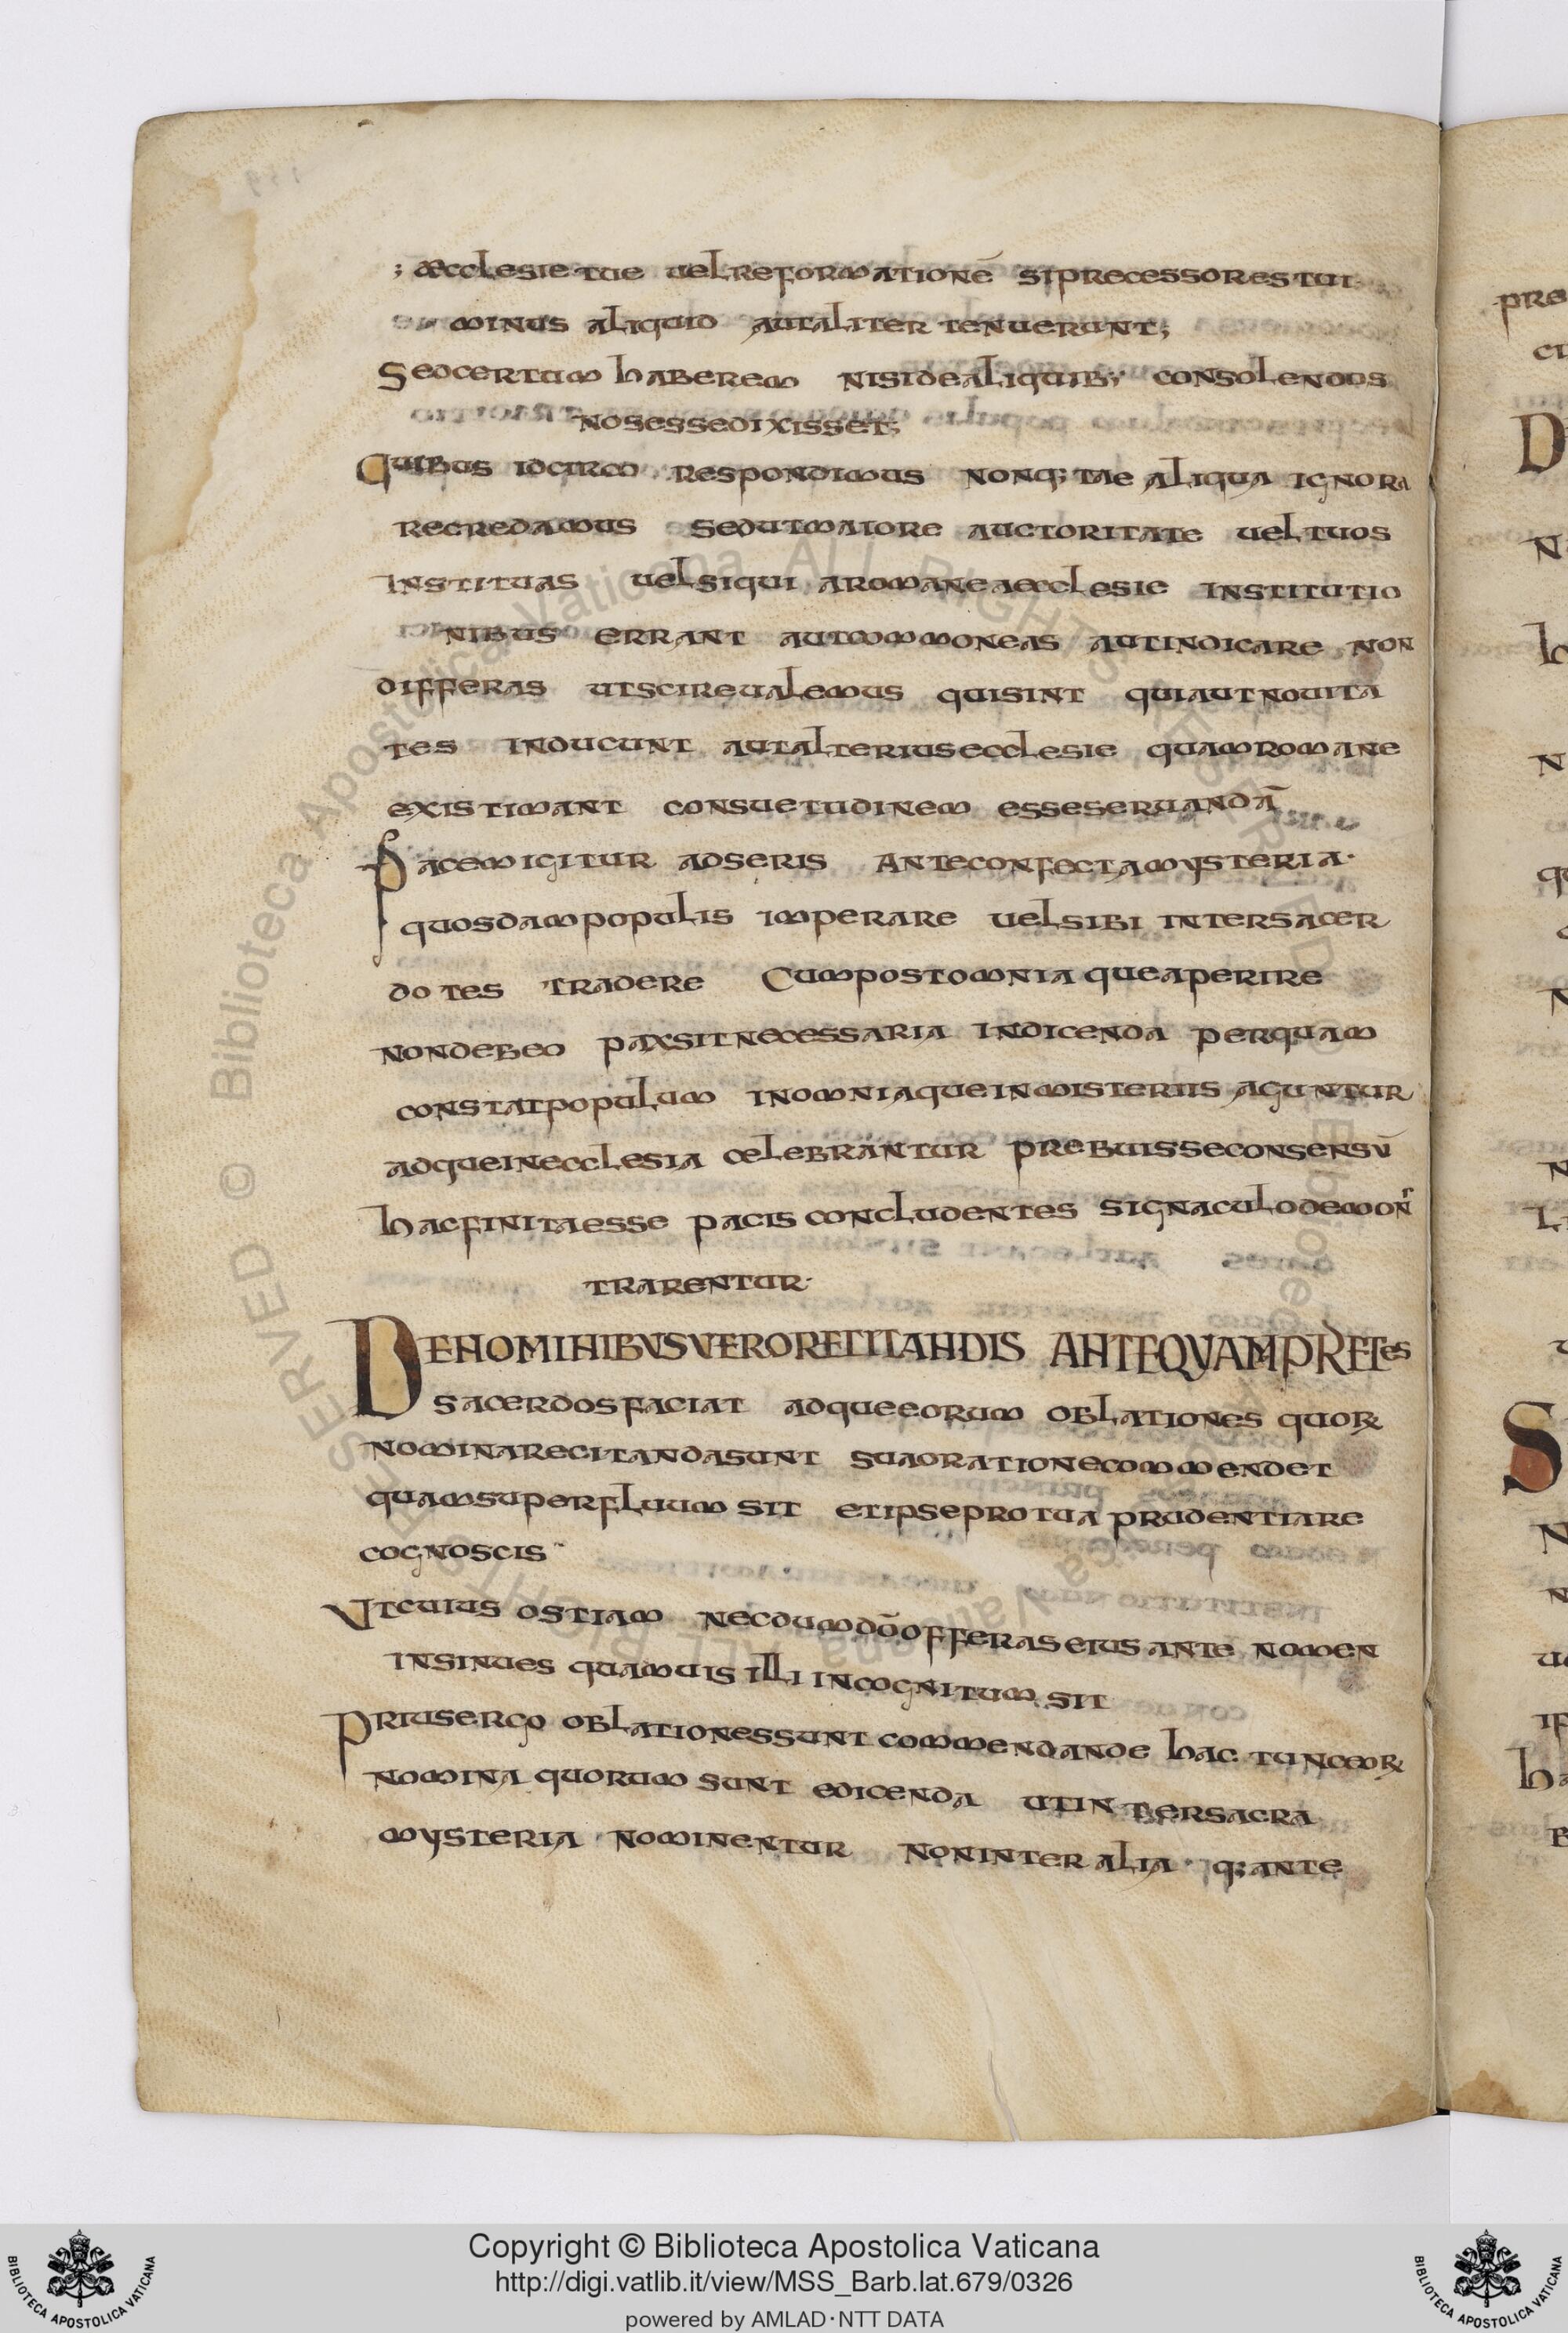 ; æcclesie tue uel reformationē si precessores tui
minus aliquid aut aliter tenuerunt;
Sed certum haberem nisi de aliquib; consolendos
nos esse dixisset;
Quibus idcirco respondimus non q; tae aliqua ignora
re credamus sed ut maiore auctoritate uel tuos
instituas uel si qui a romane aecclesie institutio
nibus errant aut commoneas aut indicare non
differas ut scire ualemus qui sint qui aut nouita
tes inducunt aut alterius ecclesie quam romane
existimant consuetudinem esse seruandā
Pacem igitur adseris ante confecta mysteria·
quosdam populis imperare uel sibi inter sacer
dotes tradere Cum post omnia que aperire
non debeo pax sit necessaria indicenda per quam
constat populum in omnia que in misteriis aguntur
adque in ecclesia celebrantur prebuisse consensū
hac finita esse pacis concludentes signaculo demons
trarentur·
DE NOMINIBVS VERO RECITANDIS ANTEQVAM PRECes
sacerdos faciat adque eorum oblationes quoꝝ
nomina recitanda sunt sua oratione commendet
quam superfluum sit et ipse pro tua prudentia re
cognoscis
Vt cuius ostiam necdum dō offeras eius ante nomen
insinues quamuis illi incognitum sit
Prius ergo oblationes sunt commendande hac tunc eoꝝ
nomina quorum sunt edicenda ut inter sacra
mysteria nominentur non inter alia· q; ante
pre
D
N
N
S
N
Copyright © Biblioteca Apostolica Vaticana
http://digi.vatlib.it/view/MSS_Barb.lat.679/0326
powered by AMLAD·NTT DATA
BIBLIOTECA APOSTOLICA VATICANA
BIBLIOTECA APOSTOLICA VATICANA